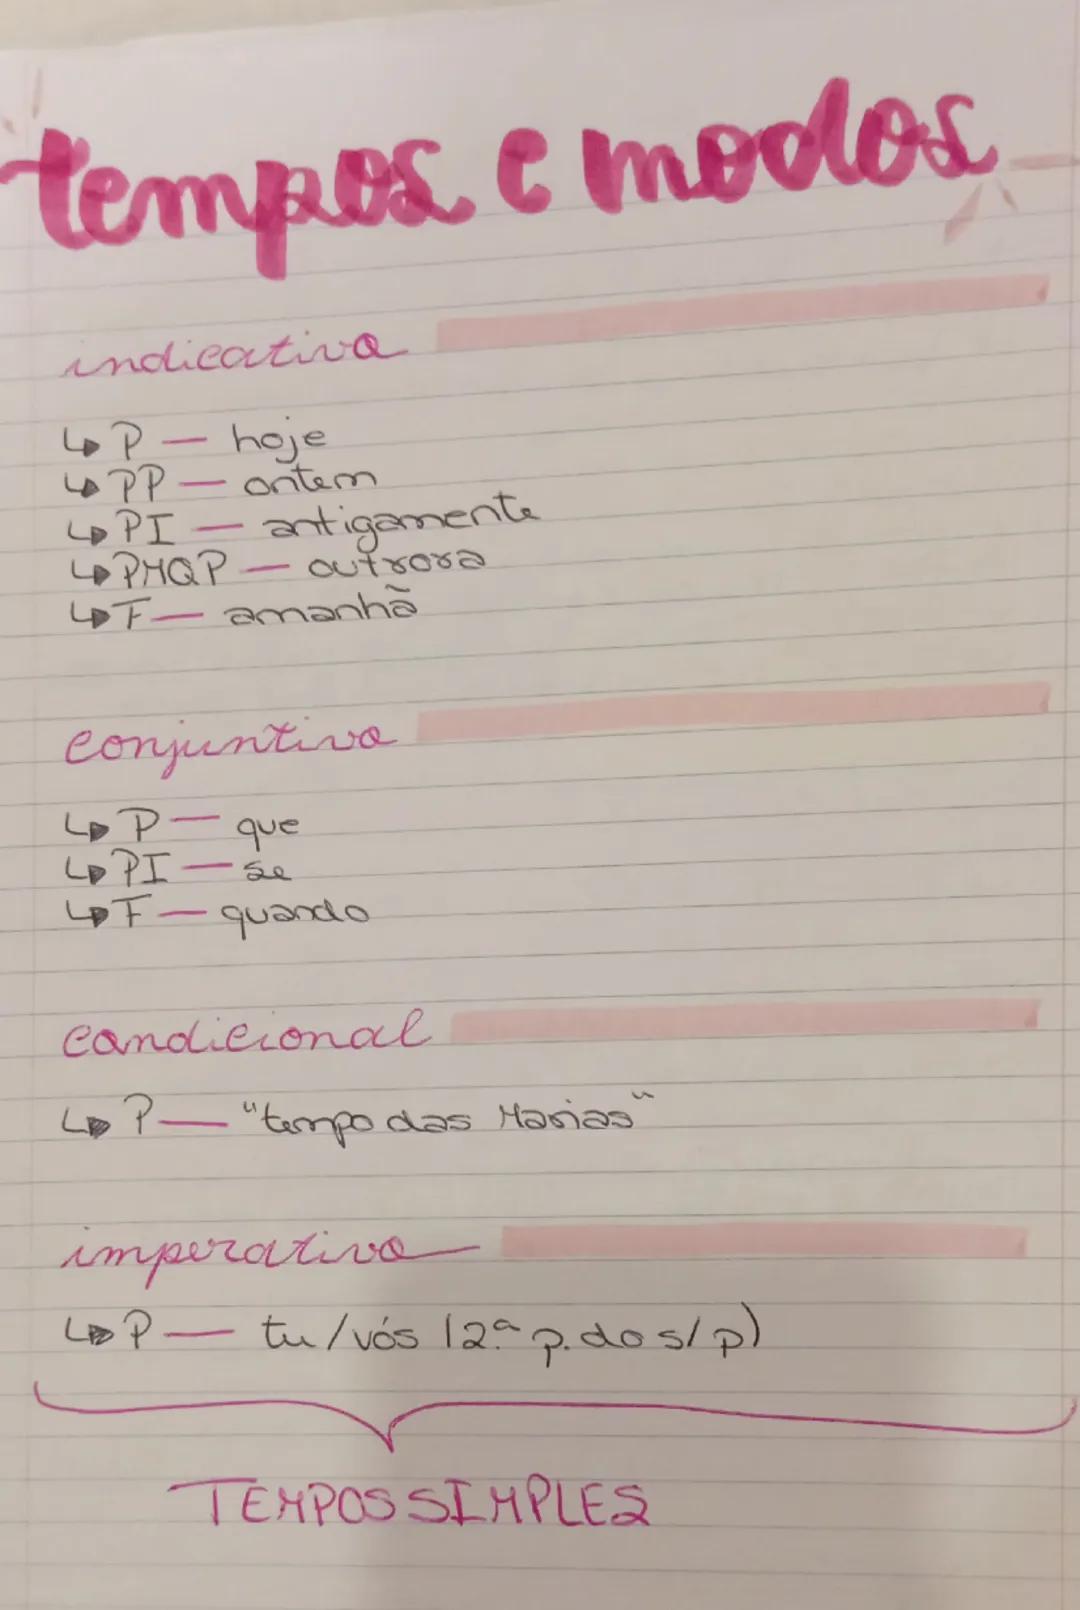 tempos e modos
indicativo
↳ P — hoje
↳ PP — ontem
↳ PI — antigamente
↳ PMQP — outrora
↳ F — amanhã
conjuntivo
↳ P — que
↳ PI — se
↳ F — quando
condicional
↳ P — "tempo das Marias"
imperativo
↳ P — tu/vós (2.ª p. do s/p)
TEMPOS SIMPLES